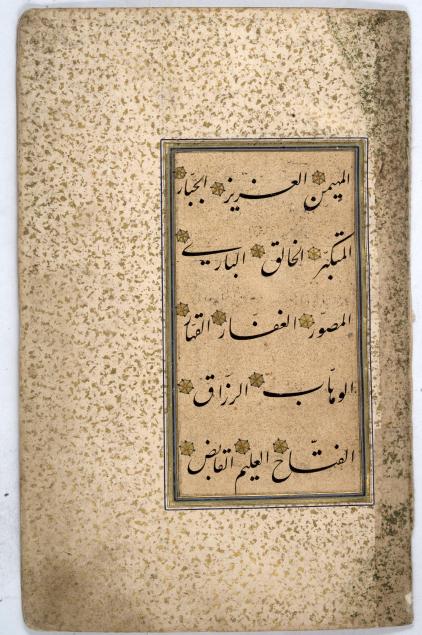 المهيمن العزيز الجبار
المتكبّر الخالق الباري
المصوّر الغفار القهار
الوهّاب الرزّاق
الفتّاح العليم القابض